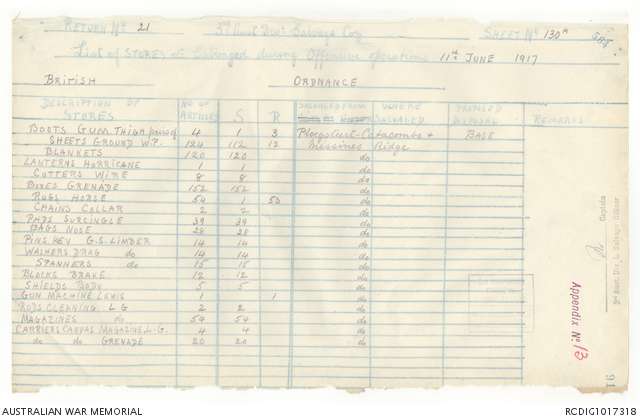 RETURN No 21 3rd Aust Divl Salvage Coy SHEET No 130A
List of STORES etc Salvaged during Offensive operations 11th JUNE 1917
BRITISH ORDNANCE
DESCRIPTION OF STORES No OF ARTICLES S R SALVAGED FROM WHERE SALVAGED PROPOSED DISPOSAL REMARKS
BOOTS GUM THIGH pairs of 4 1 3 Ploegsteert-Catacombs & BASE
SHEETS GROUND W.P. 124 112 12 Messines Ridge
BLANKETS 120 120 do
LANTERNS HURRICANE 1 1 do
CUTTERS WIRE 8 8 do
BOXES GRENADE 152 152 do
RUGS HORSE 54 1 53 do
CHAINS COLLAR 2 2 do
PADS SURCINGLE 39 39 do
BAGS NOSE 28 28 do
PINS KEY G.S. LIMBER 14 14 do
WASHERS DRAG do 14 14 do
SPANNERS do 15 15 do
BLOCKS BRAKE 12 12 do
SHIELDS BODY 5 5 do
GUN MACHINE LEWIS 1 1 do
RODS CLEANING L G 2 2 do
MAGAZINES do 54 54 do
CARRIERS CANVAS MAGAZINE L.G. 4 4 do
do do GRENADE 20 20 do
Captain
3rd Aust. Div. Salvage Officer
Appendix No 13
91
AUSTRALIAN WAR MEMORIAL RCDIG1017318